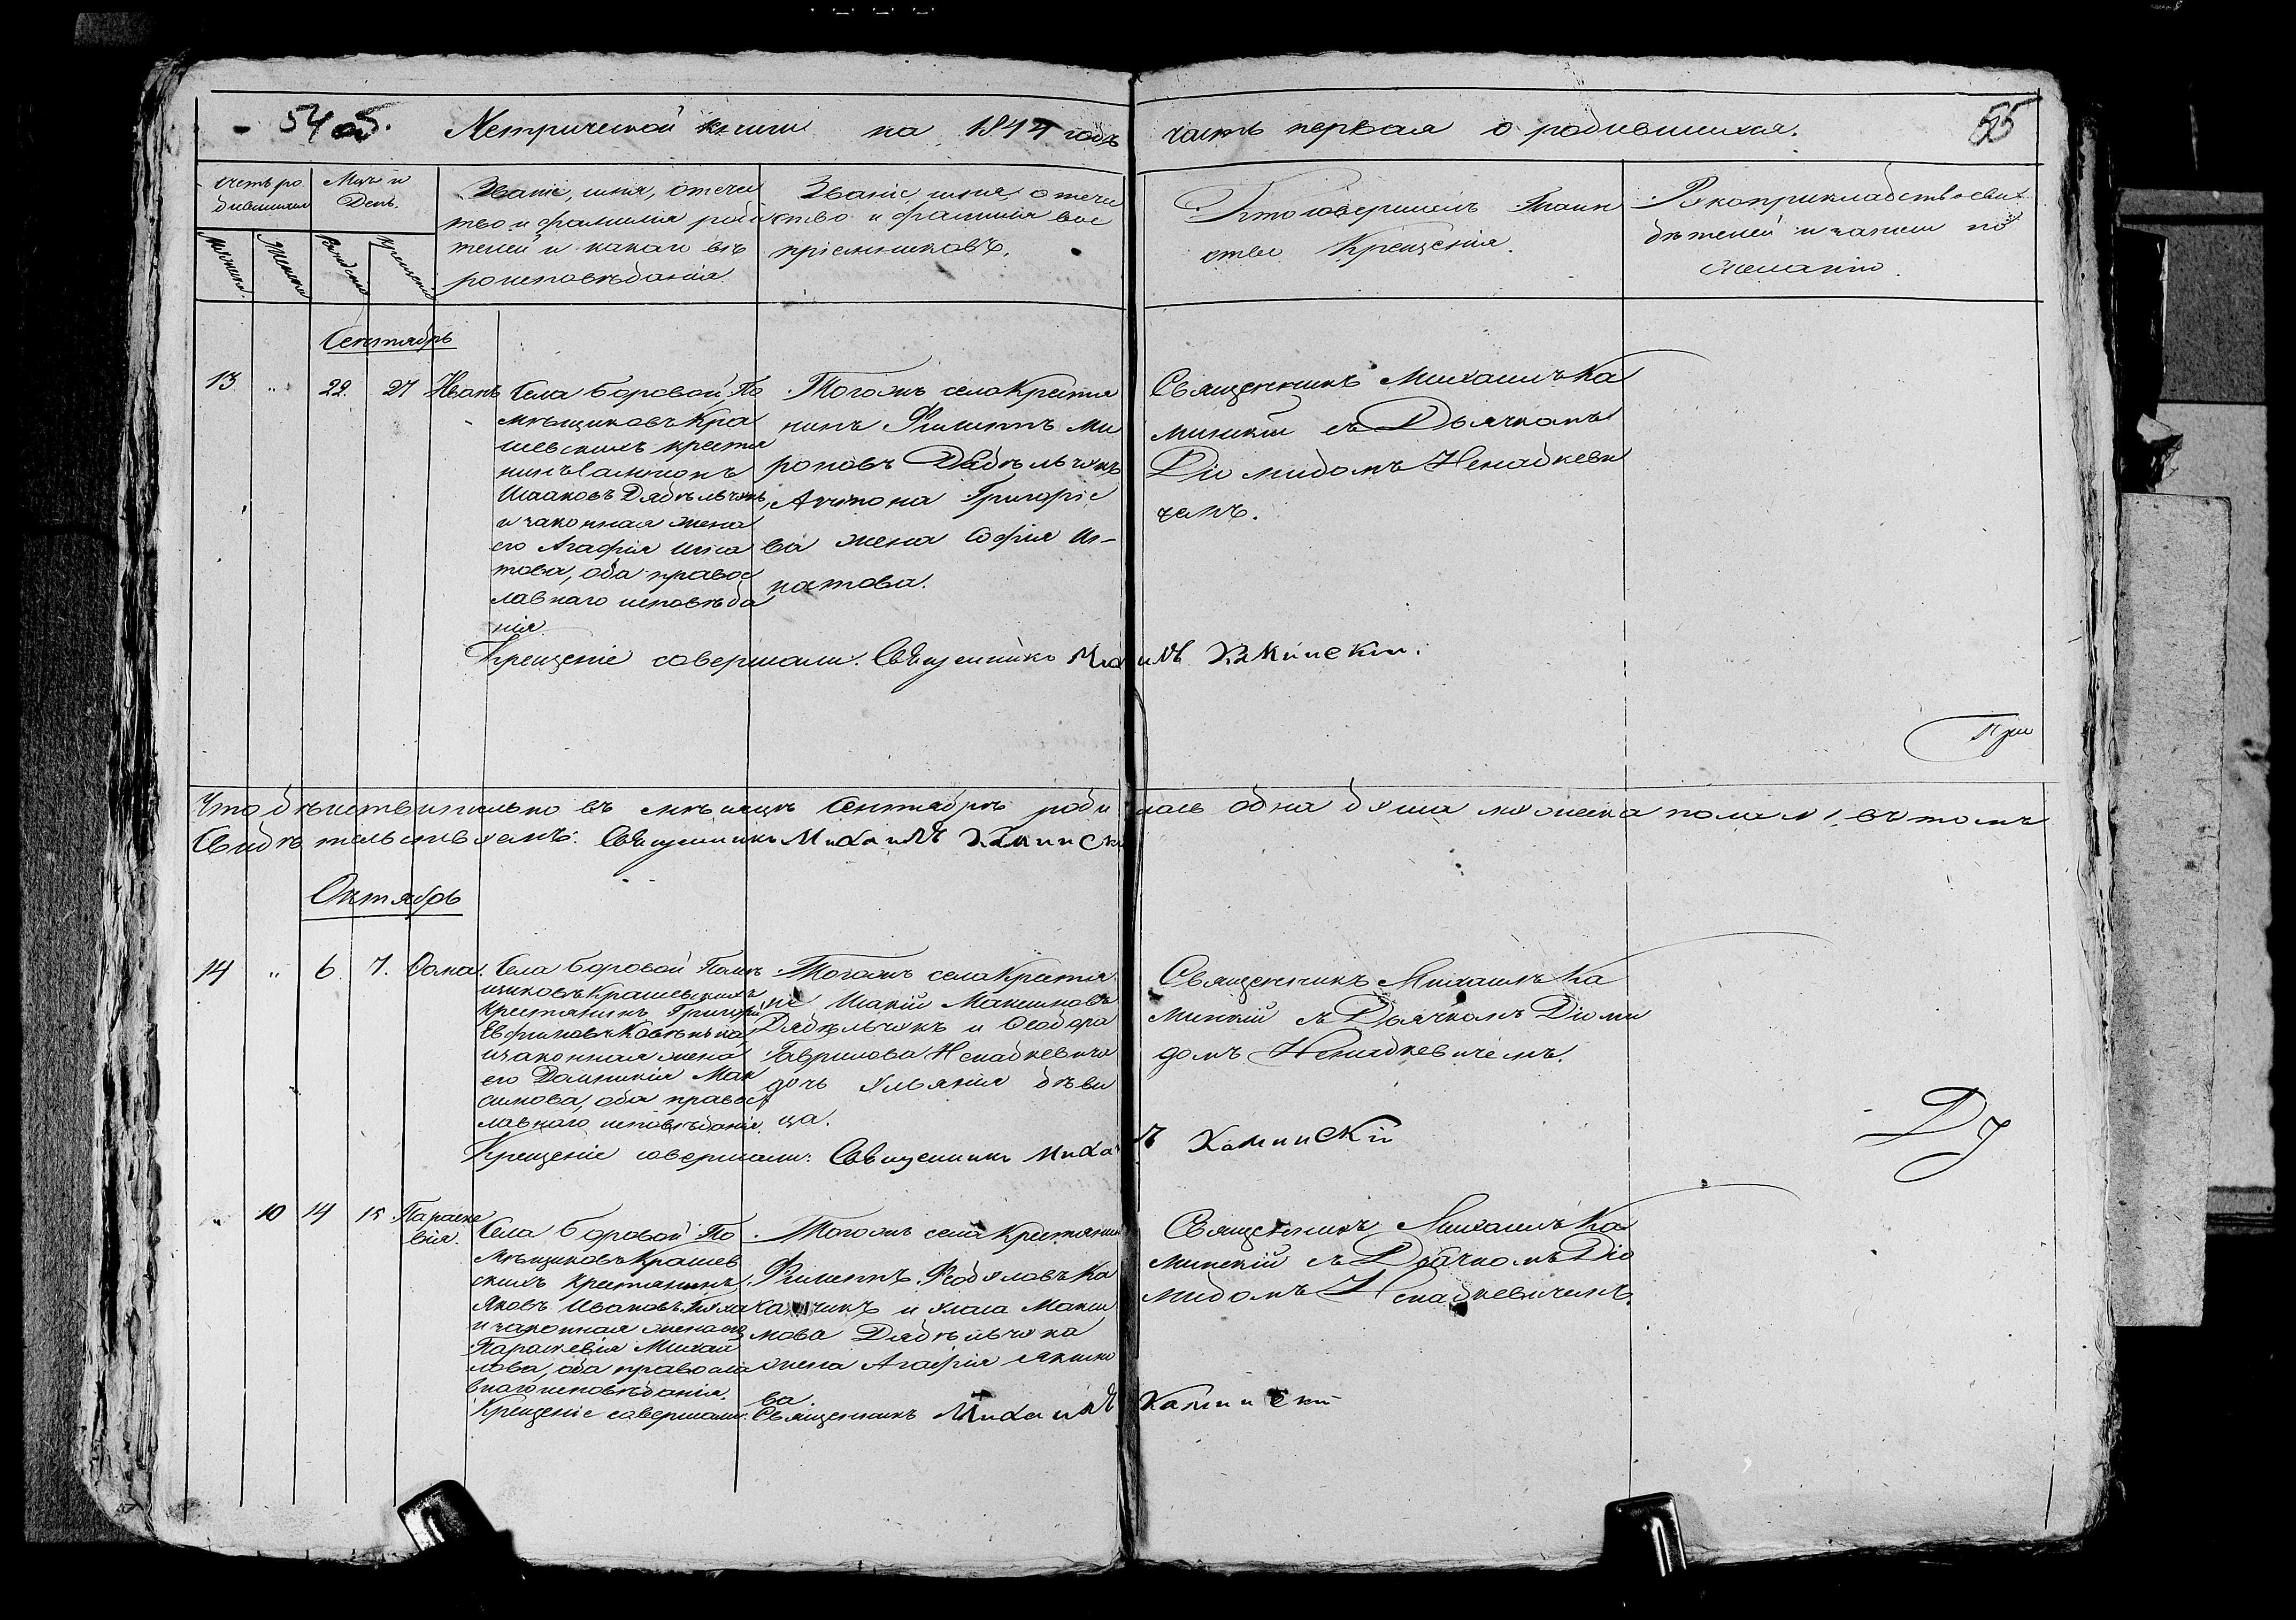 54 об. Метрической книги на 1844 годъ часть первая о родившихся. 55
Счетъ ро
дившихся
Мцъ и
День.
Званіе, имя, отече
ство и фамилія роди
телей и какаго вѣ
роисповѣданія.
Званіе, имя, отече
ство и фамилія вос
пріемниковъ.
Кто совершалъ Таин
ство Крещенія.
Рукоприкладство сви
дѣтелей и записи по
желанію.
Мужеска.
Женска
Рожденія
Крещенія
Сентябрь
13 " 22. 27 Иванъ
Села Боровой По
мѣщиковъ Кра
шевскихъ крестья
нинъ
Исааковъ Дядѣльчукъ
и законная жена
его Агафія Игна
това, оба правос
лавнаго исповѣда
нія.
Тогожъ села Крестья
нинъ Филиппъ Ми
роновъ Дядѣльчукъ
Антона Григоріе
ва жена Софія Иг-
натова.
Священникъ Михаилъ Ка
минскій съ Дьячкомъ
Діомидомъ Ненадкеви
чемъ.
Крещеніе совершали: Священникъ Михаилъ Каминскій.
При
Что дѣйствительно въ мѣсяцѣ Сентябрѣ роди лась одна душа мужеска пола 1, въ томъ
Свидѣтельствуемъ: Священникъ Михаилъ Каминскі
Октябрь
14 " 6. 7. Ѳома.
Села Боровой Помѣ
щиковъ Крашевскихъ
Крестьянинъ Григорій
Евфимовъ
и законная жена
его Домникія Мак
симова, оба правос
лавнаго исповѣданія.
Тогожъ села Крестья
не Макимовъ
Дядѣльчукъ и Ѳеодора
Гаврилова Ненадкевича
дочь Ульянія дѣви
ца.
Священникъ Михаилъ Ка
минскій съ Дьячкомъ Діоми
домъ Ненадкевичемъ.
Крещеніе совершали: Священникъ Михаилъ Каминскій
" 10 14 15 Параске
вія.
Села Боровой По
мѣщиковъ Крашев
скихъ крестьянинъ
Яковъ Ивановъ
и законная жена его
Параскевія Михай
лова, оба правосла
внаго исповѣданія.
Тогожъ села Крестьянинъ
Филиппъ
и Уласа Макси
мова Дядѣльчука
жена Агафія Якимо
ва.
Священникъ Михаилъ Ка
минскій съ Дьячкомъ Діо
мидомъ Ненадкевичемъ.
Крещеніе совершали: Священникъ Михаилъ Каминскій